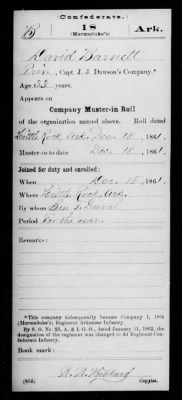 Confederate.
B 18 Ark.
(Marmaduke's)
David Barnett
Priv, Capt. J. J. Dawson's Company.*
Age 33 years.
Appears on
Company Muster-in Roll
of the organization named above. Roll dated
Little Rock, Ark. Dec. 18, 1861.
Muster-in to date Dec. 18, 1861.
Joined for duty and enrolled:
When Dec. 18, 1861.
Where Little Rock, Ark.
By whom Ben
Period For the war.
Remarks:
*This company subsequently became Company I, 18th
(Marmaduke's) Regiment Arkansas Infantry.
By S. O. No. 25, A. & I. G. O., dated January 31, 1862, the
designation of the regiment was changed to 3d Regiment Con-
federate Infantry.
Book mark:
Hibbard
(656) Copyist.